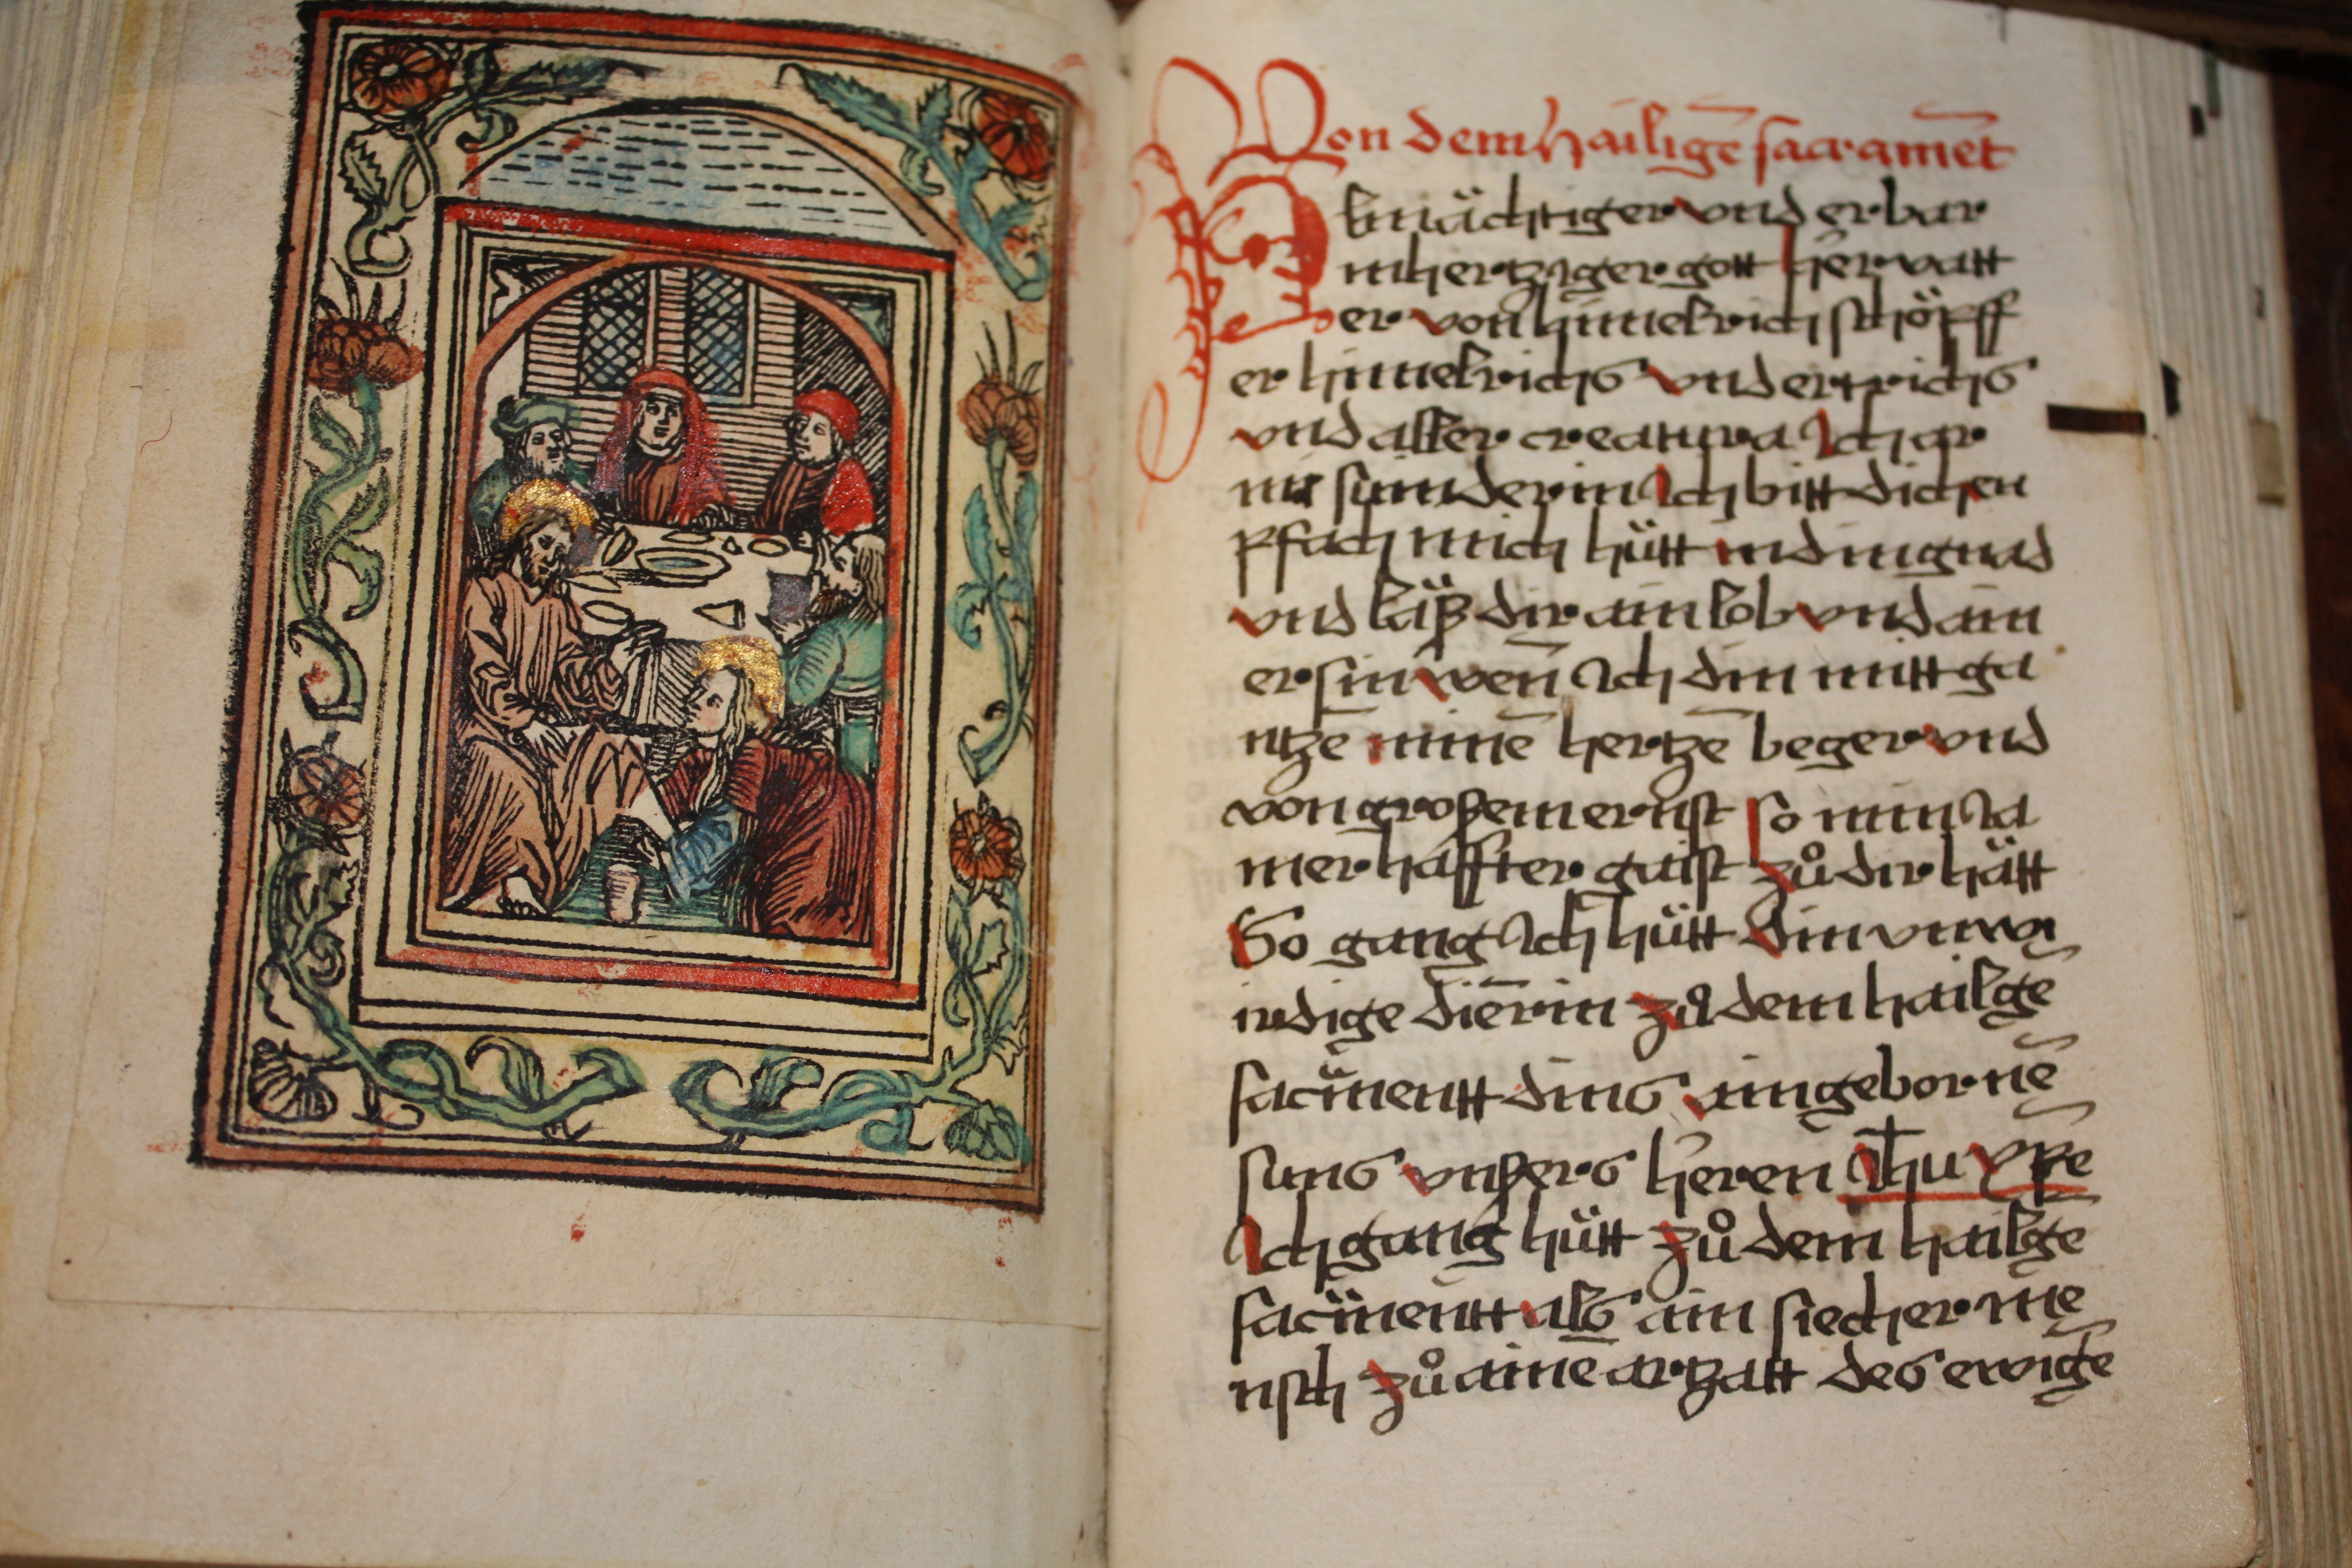 Von dem hailigē sacramēt
Almächtiger vnd erbar
mhertziger gott her vatt
er von himelrich schöpff
er himelrichs vnd ertrichs
vnd aller creatura Ich ar
mi sünderin Ich bitt dich en
pfach mich hütt in din gnad
vnd läß dir ain lob vnd ain
er sin wen̄ Ich din mitt ga
ntzē minē hertzē beger vnd
von großem ernst so min Ja
merhaffter gaist zů dir hätt
So gang Ich hütt din vnwi
irdige diērin zů dem hailgē
sacmentt dins aingebornē
suns vnßers heren Ihu xpē
Ich gang hütt zů dem hailgē
sacmentt als ain siecher mē
nsch zů ainē artzatt des ewigē